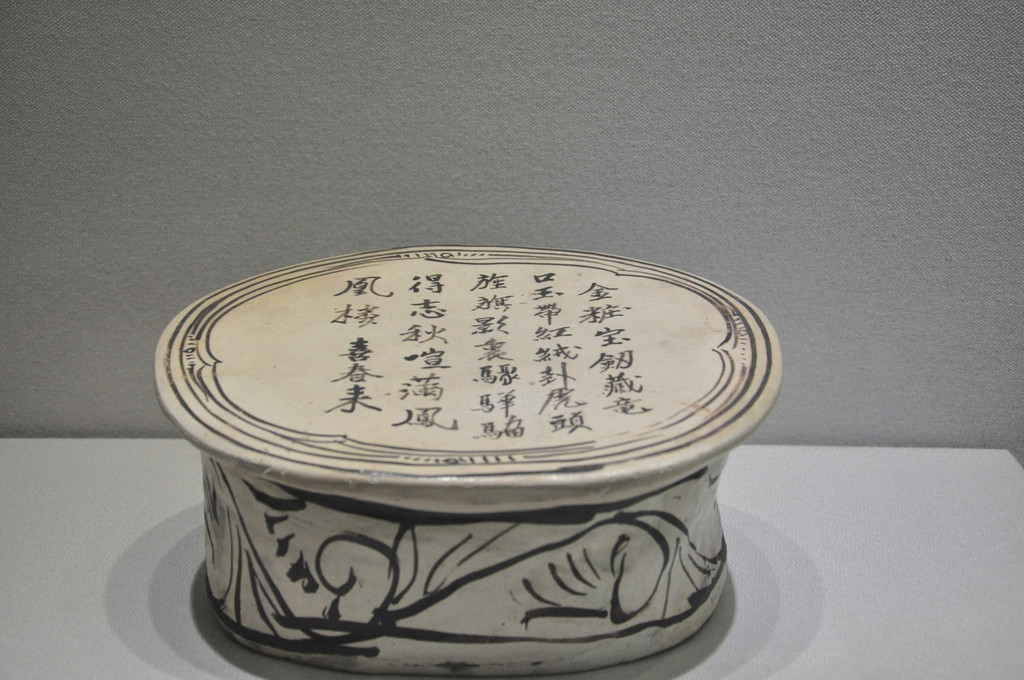 金粧宝剱藏竜
口玉帶紅絨卦虎頭
旌旗影裏驟驊騮
得志秋喧滿鳳
凰楼喜春来